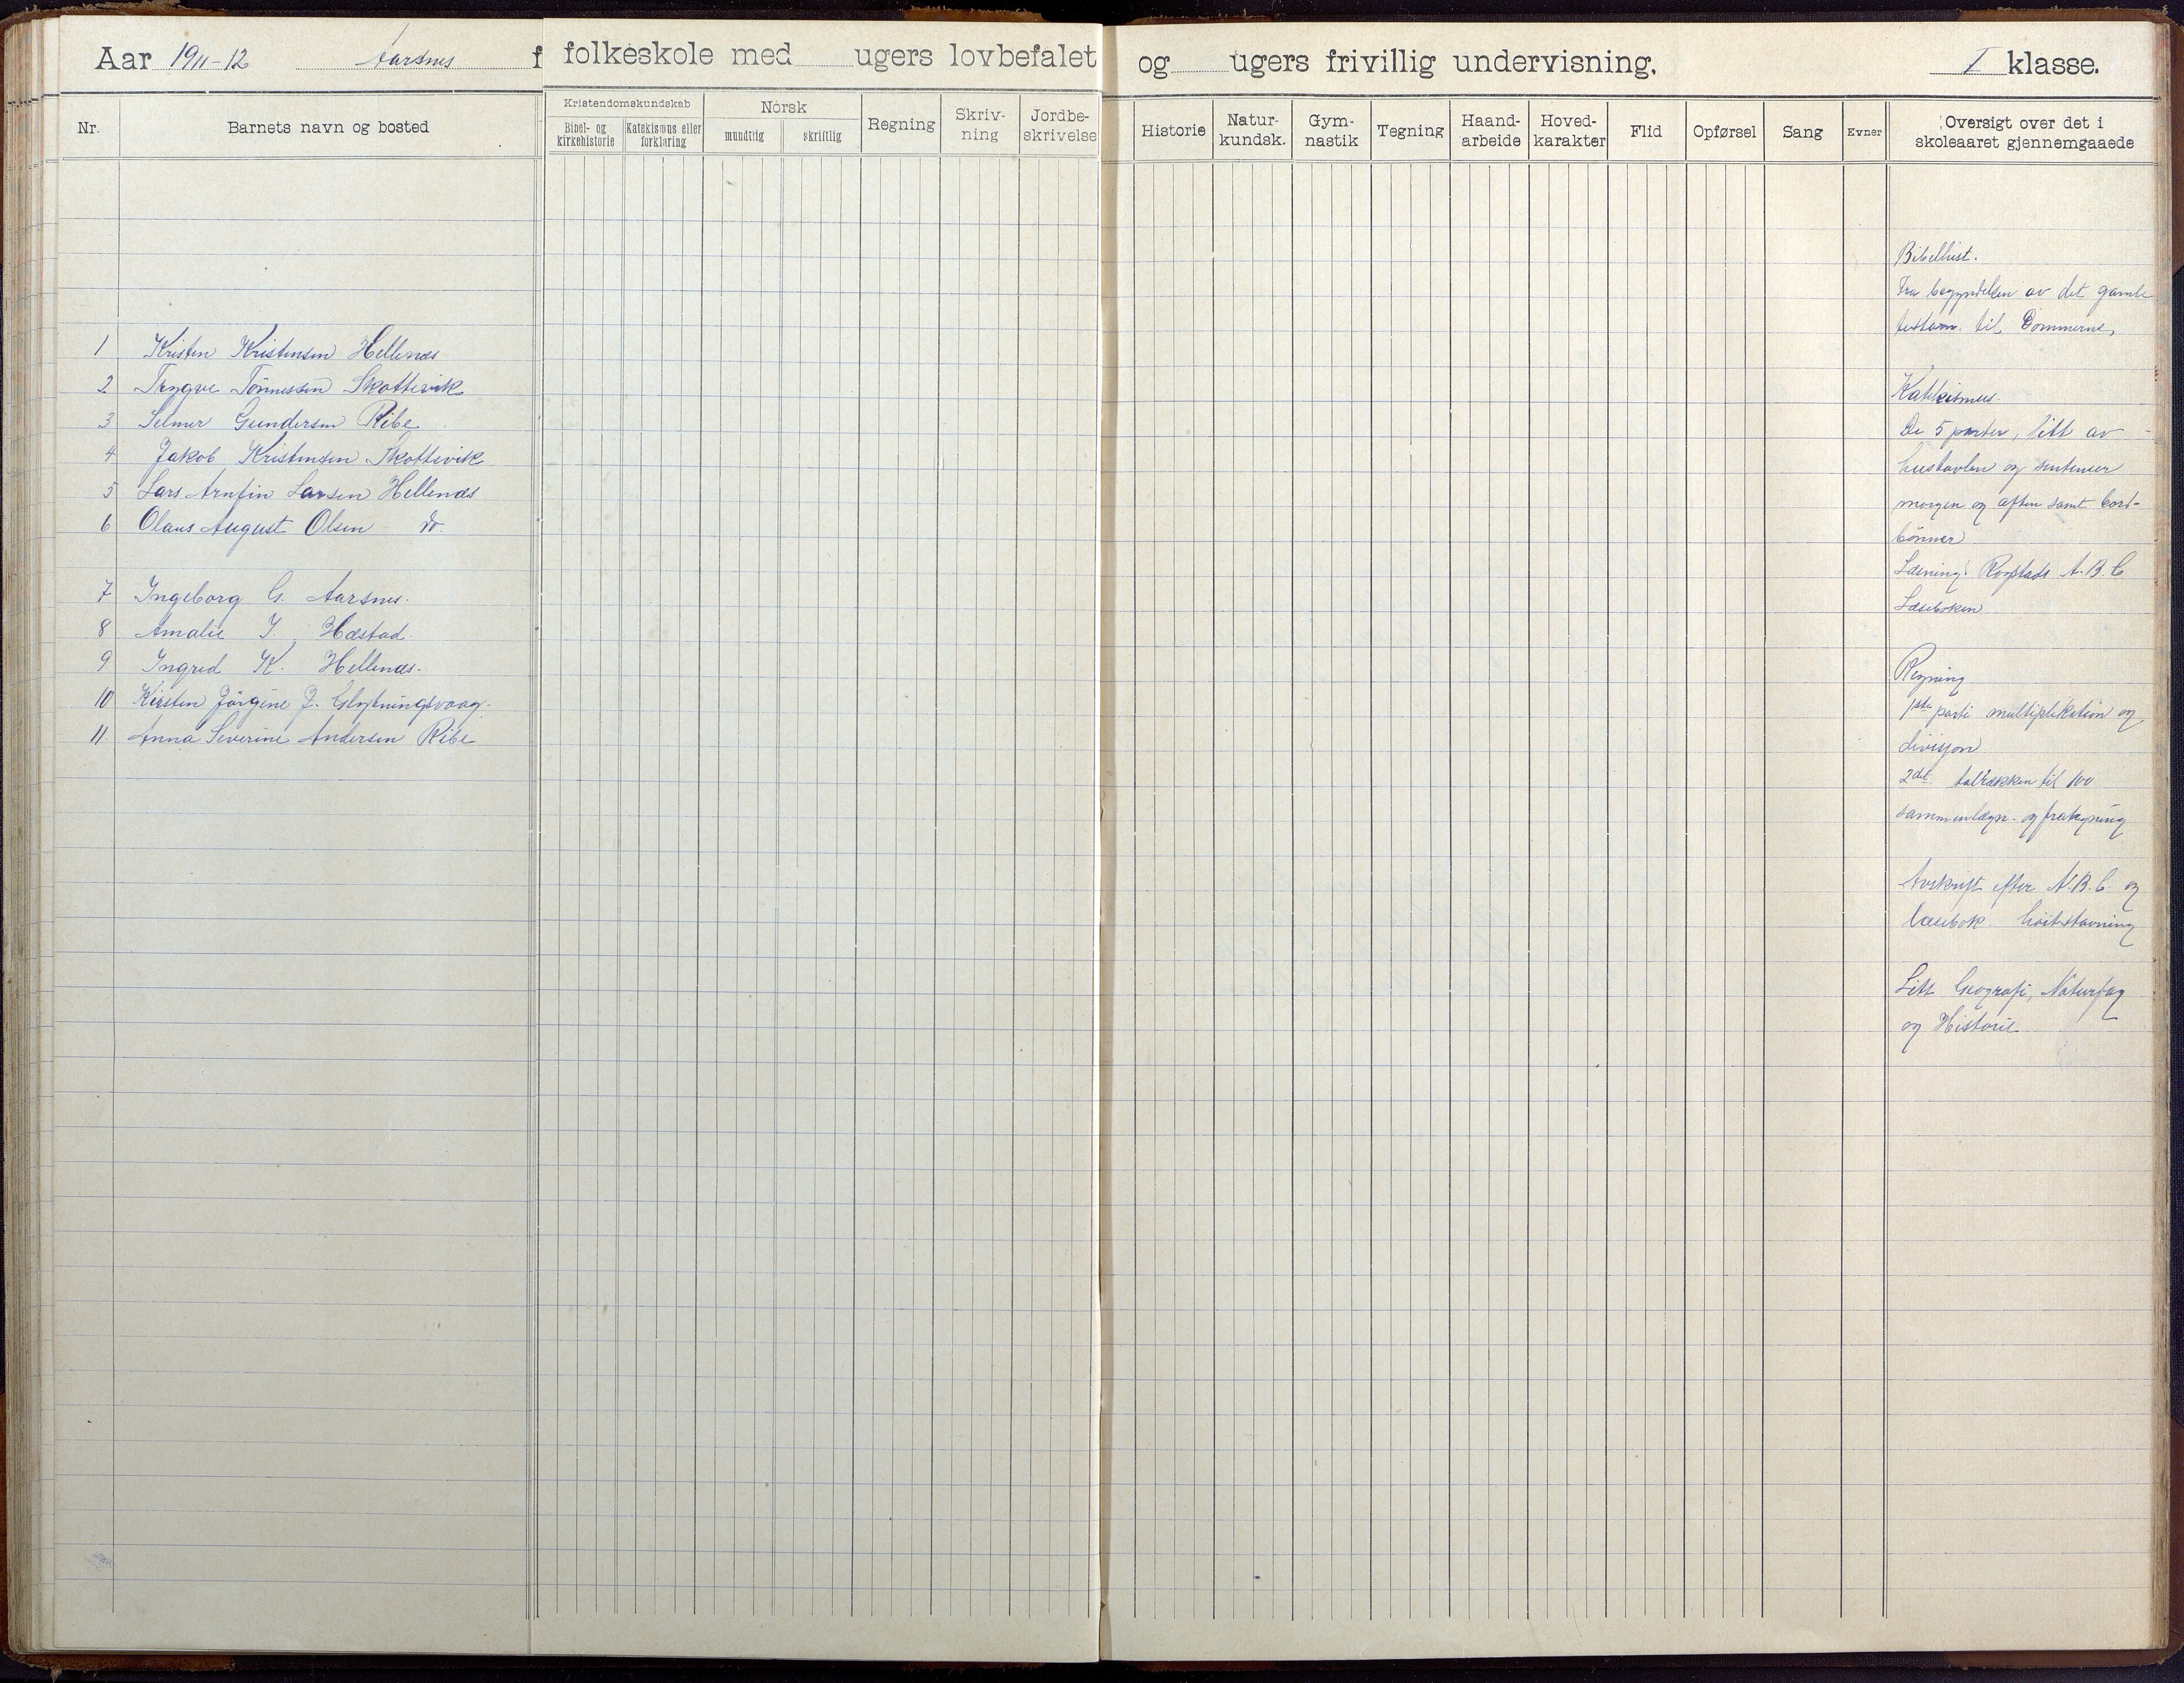 Aar 1911-12 Aarsnes f folkeskole med ugers lovbefalet og ugers frivillig undervisning. I klasse.
Nr. Barnets navn og bosted
Kristendomskundskab Norsk Regning Skriv-ning Jordbe-skrivelse
Bibel- og kirkehistorie Katekismus eller forklaring mundtlig skriftlig
Historie Natur-kundsk. Gym-nastik Tegning Haand-arbeide Hoved-karakter Flid Opførsel Sang Evner Oversigt over det i skoleaaret gjennemgaaede
1 Kristen Kristensen Hellenæs
2 Trygve Tönnessen Skottevik
3 Selmer Gundersen Ribe
4 Jakob Kristensen Skottevik
5 Lars Arnfin Larsen Hellenæs
6 Olaus August Olsen do.
7 Ingeborg G. Aarsnes.
8 Amalie J. Hæstad.
9 Ingrid K. Hellenæs.
10 Kirsten Jörgine J.
11 Anna Severine Andersen Ribe
Bibelhist.
Fra begyndelsen av det gamle
testam. til Dommerne,
Katekismus.
De 5 parter, litt av
hustavlen og sentenser
morgen og aften samt bord-
bönner
Læsning: Rogstads A.B.C
Læseboken
Regning
1ste parti multiplikation og
divisjon
2det talrækken til 100
sammenlægn. og fratrækning
Avskrift efter A.B.C. og
læsebok. höitstavning
Litt Geografi, Naturfag
og Historie